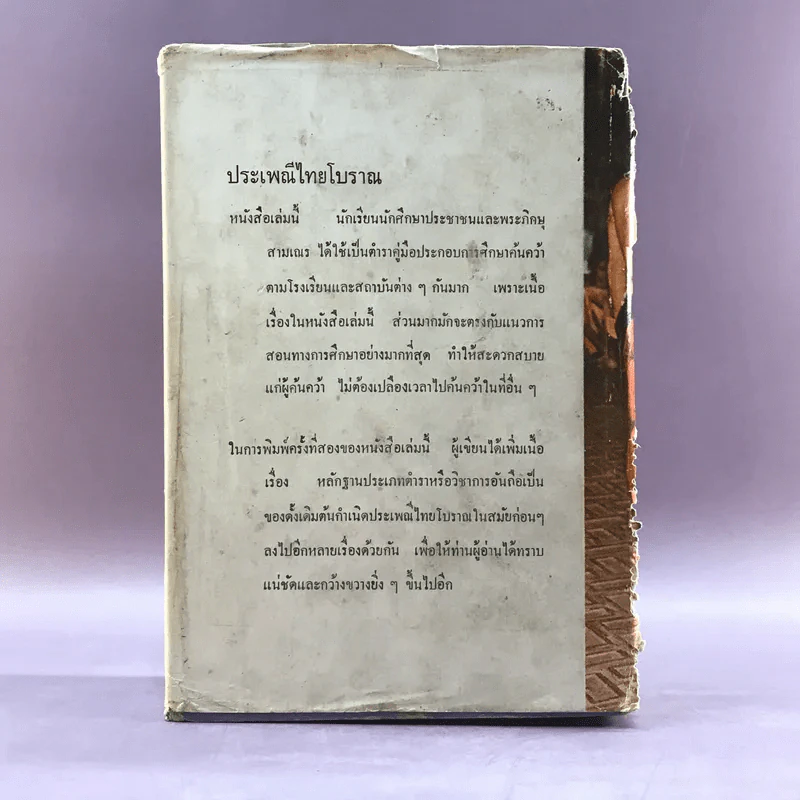 ประเพณีไทยโบราณ
หนังสือเล่มนี้ นักเรียนนักศึกษาประชาชนและพระภิกษุ
สามเณร ได้ใช้เป็นตำราคู่มือประกอบการศึกษาค้นคว้า
ตามโรงเรียนและสถาบันต่าง ๆ กันมาก เพราะเนื้อ
เรื่องในหนังสือเล่มนี้ ส่วนมากมักจะตรงกับแนวการ
สอนทางการศึกษาอย่างมากที่สุด ทำให้สะดวกสบาย
แก่ผู้ค้นคว้า ไม่ต้องเปลืองเวลาไปค้นคว้าในที่อื่น ๆ
ในการพิมพ์ครั้งที่สองของหนังสือเล่มนี้ ผู้เขียนได้เพิ่มเนื้อ
เรื่อง หลักฐานประเภทตำราหรือวิชาการอันถือเป็น
ของดั้งเดิมต้นกำเนิดประเพณีไทยโบราณในสมัยก่อนๆ
ลงไปอีกหลายเรื่องด้วยกัน เพื่อให้ท่านผู้อ่านได้ทราบ
แน่ชัดและกว้างขวางยิ่ง ๆ ขึ้นไปอีก